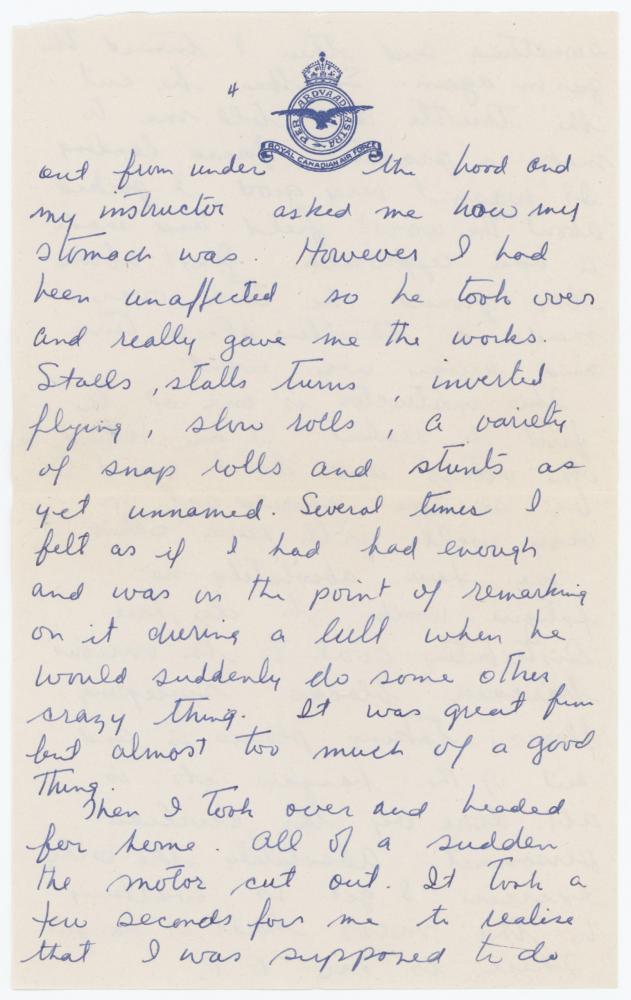 4
PER ARDUA AD ASTRA
ROYAL CANADIAN AIR FORCE
out from under the hood and
my instructor asked me how my
stomach was. However I had
been unaffected so he took over
and really gave me the works.
Stalls, stalls turns, inverted
flying, slow rolls, a variety
of snap rolls and stunts as
yet unnamed. Several times I
felt as if I had had enough
and was on the point of remarking
on it during a lull when he
would suddenly do some other
crazy thing. It was great fun
but almost too much of a good
thing.
Then I took over and headed
for home. All of a sudden
the motor cut out. It took a
few seconds for me to realise
that I was supposed to do